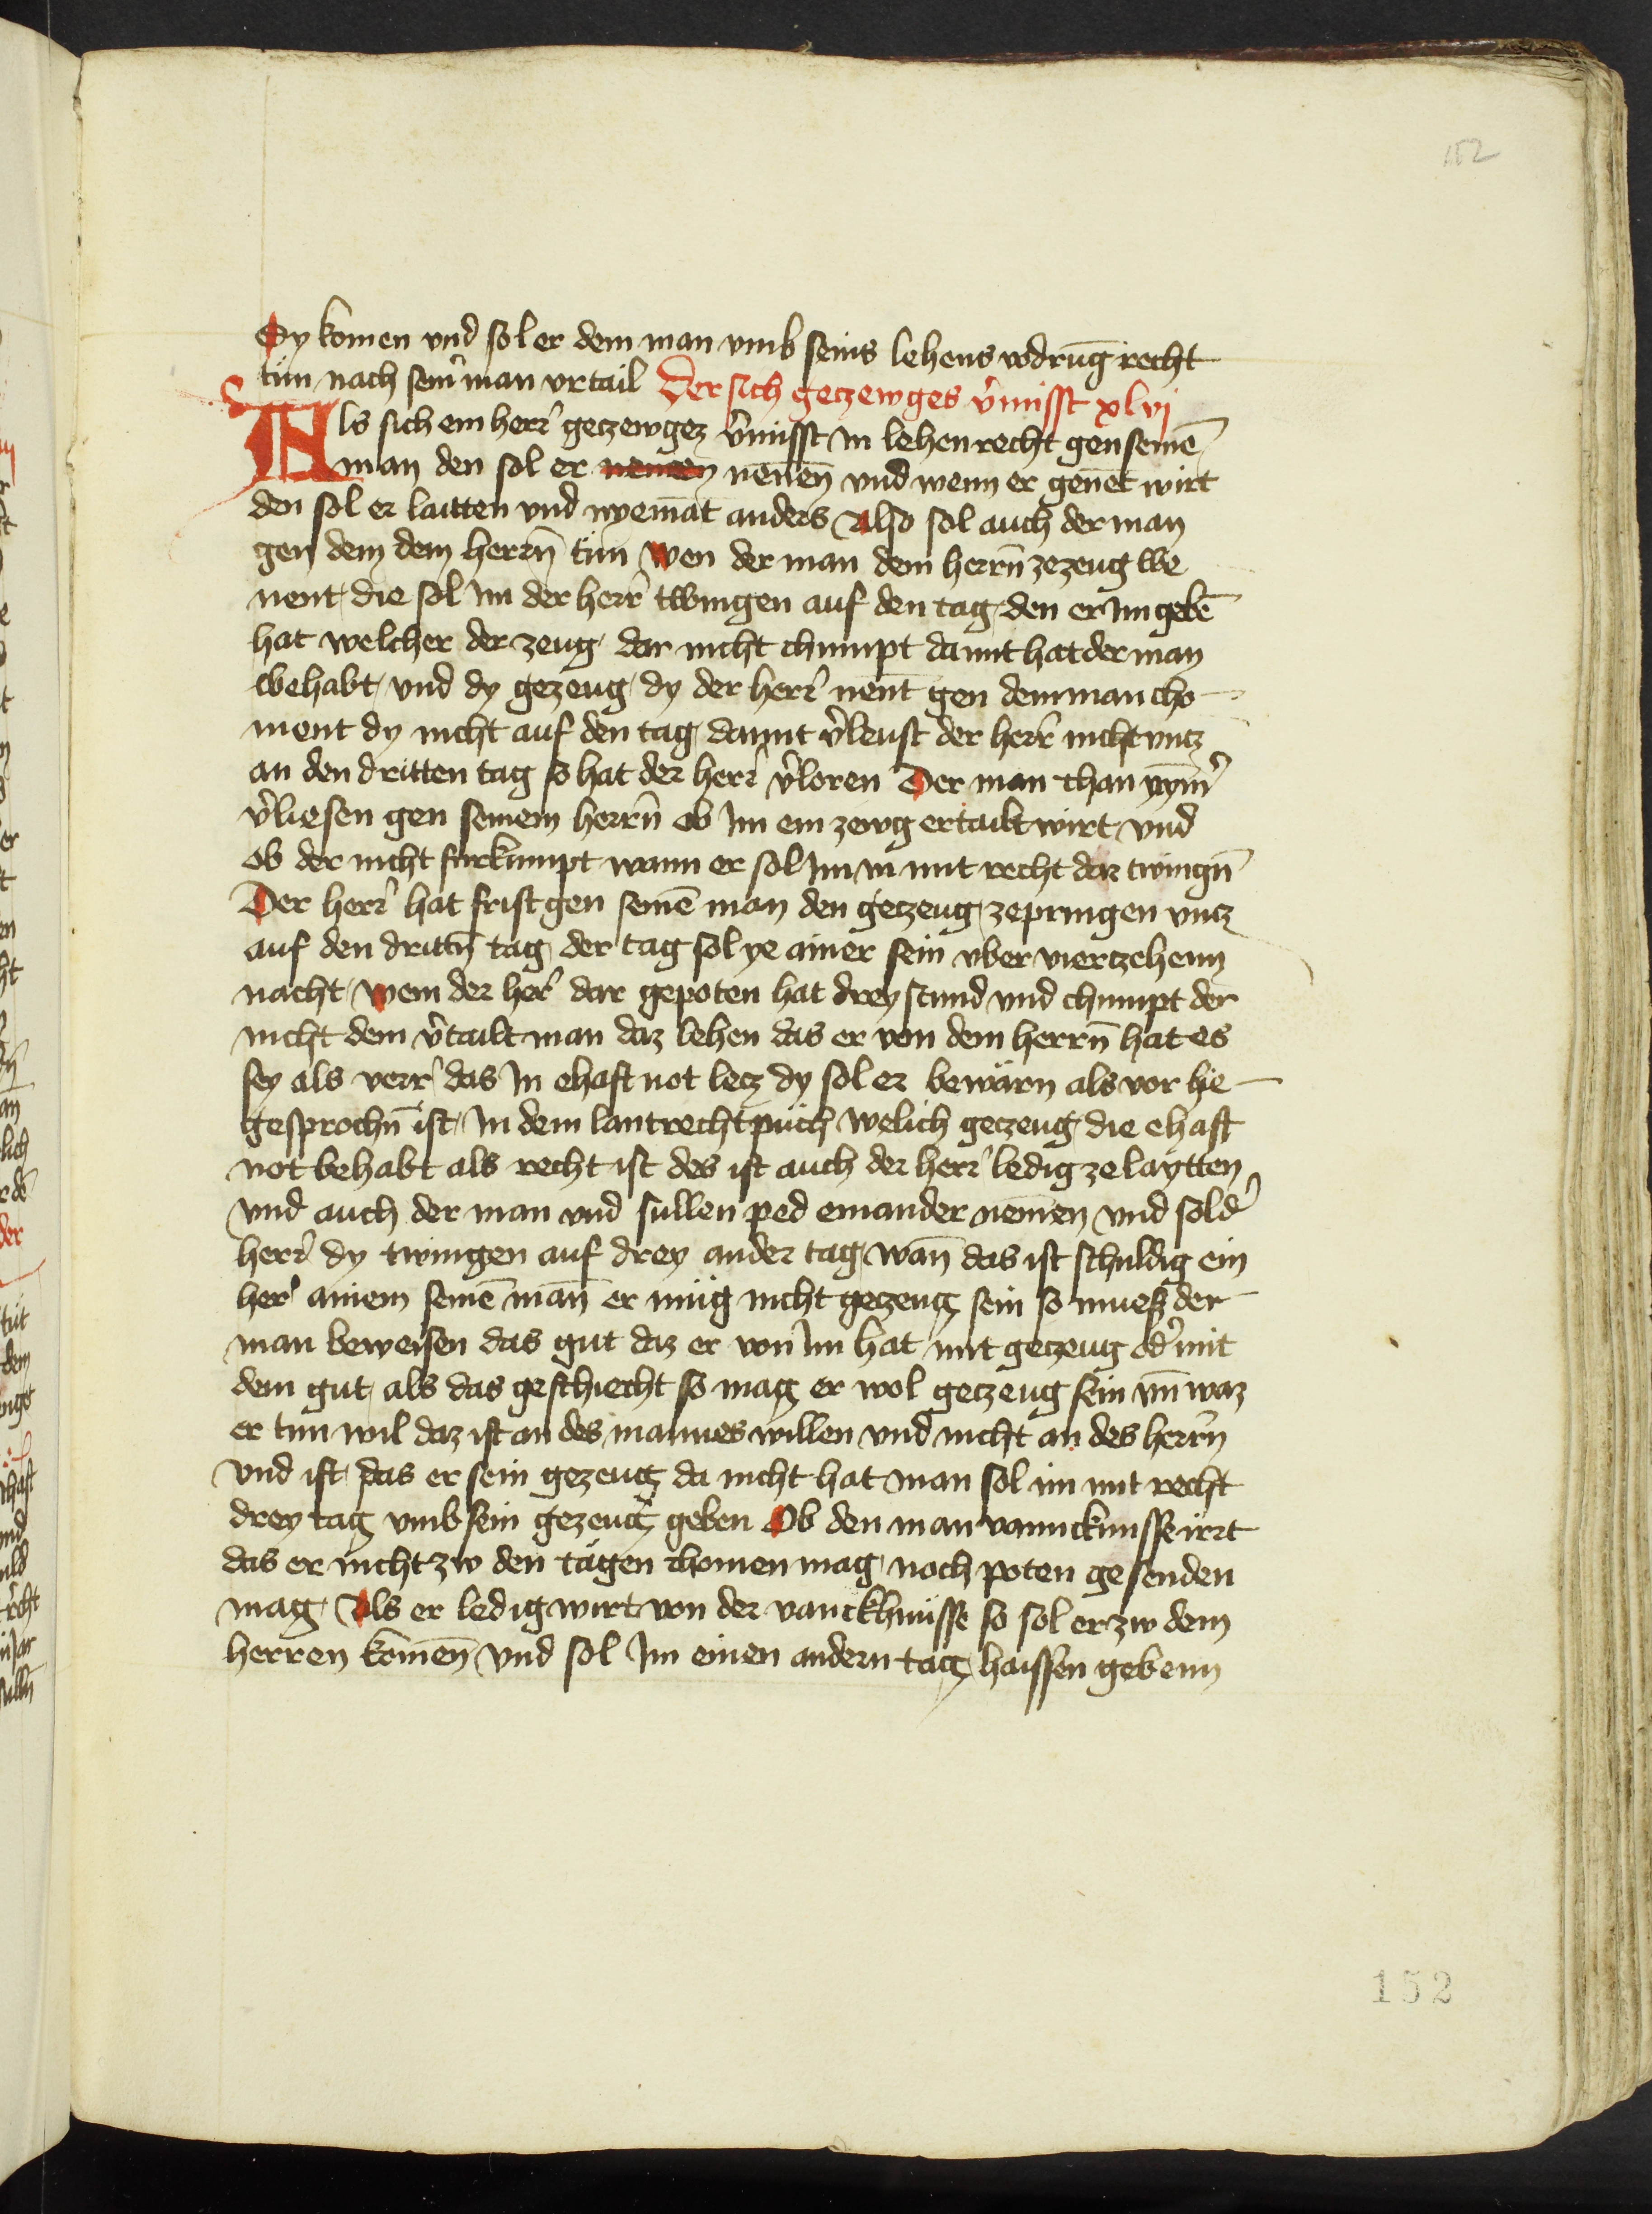 152
Dy komen vnd sol er dem man vmb seins lehens vodrūg recht
tun nach sein̄ man vrtail Der sich geczewges v̉misst xlvj
Als sich ein herr̉ geczewgez v̉misst in lehenrecht gen seinē
man den sol er nennen nēnen vnd wenn er genēt wirt
den sol er laitten vnd nyemāt anders Also sol auch der man
gen dem dem herrn̄ tun Wen der man dem herrn̄ zezeug we
nent die sol im der herr̉ twingen auf den tag den er im gebē
hat welcher der zeug dar nicht chumpt damit hat der man
behabt vnd dy gezeug dy der herr̉ nent gen dem man cho
ment dy nicht auf den tag damit v̉leust der herr̉ nicht vncz
an den dritten tag so hat der herr̉ v̉loren Der man chan nym̉
v̉liesen gen seinem herrn̄ ob im ein zewg ertailt wirt vnd
ob der nicht furkumpt wann er sol im in mit recht dar twingn̄
Der herr̉ hat frist gen seinē man den geczeug zepringen vncz
auf den drittn̄ tag der tag sol ye ainer sein vber viertzehenn
nacht Wem der her̉ dar gepoten hat drey stund vnd chumpt der
nicht dem v̉tailt man daz lehen das er von dem herrn̄ hat es
sey als verr̉ das in ehaft not lecz dy sol er bewarn als vor hie
gesprochn̄ ist in dem lantrechtpuch welich geczeug die ehaft
not behabt als recht ist des ist auch der herr̉ ledig ze laytten
vnd auch der man vnd sullen ped einander nemen vnd sol d̉
herr̉ dy twingen auf drey ander tag wan̄ das ist schuldig ein
her̉ ainem seinē man̄ er mug nicht geczeug sein so muesz der
man beweisen das gut daz er von im hat mit geczeug od̉ mit
dem gut als das geschiecht so mag er wol geczeug sein vn̄ waz
er tun wil daz ist an des mannes willen vnd nicht an des herrn̄
vnd ist das er sein gezeug da nicht hat man sol im mit recht
drey tag vmb sein gezeug geben Ob den man vanncknusse irrt
das er nicht zw den tagen chomen mag noch poten gesenden
mag Als er ledig wirt von der vanckhnusse so sol er zw dem
herren komen̄ vnd sol im einen andern tag haissen gebenn
152